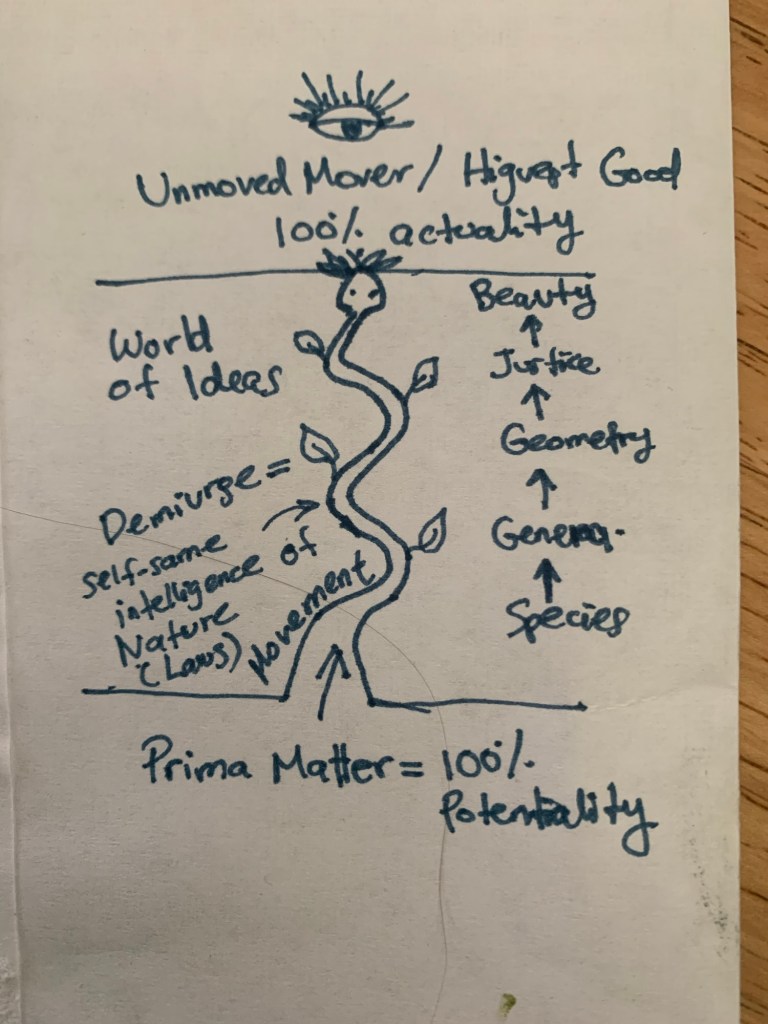 Unmoved Mover / Higuest Good
100% actuality
World
of Ideas
Beauty
Justice
Geometry
Genera.
Species
Demiurge =
self-same
intelligence of
Nature
(Laws)
Movement
Prima Matter = 100%
Potentiality